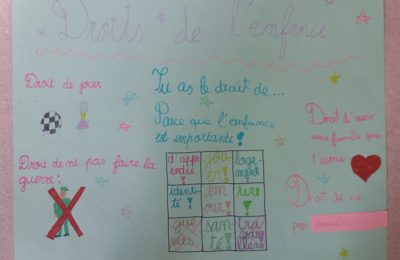 Droits de l'enfance
Droit de jouer
Tu as le droit de...
Parce que l'enfance
est importante !
Droit d'avoir
une famille qui
t'aime
Droit de ne pas faire la
guerre :
d'appr
endre !
jou
er !
loge
ment
identi
té !
rire
!
gue
rres
san
té !
tra
Droit de ne
pas